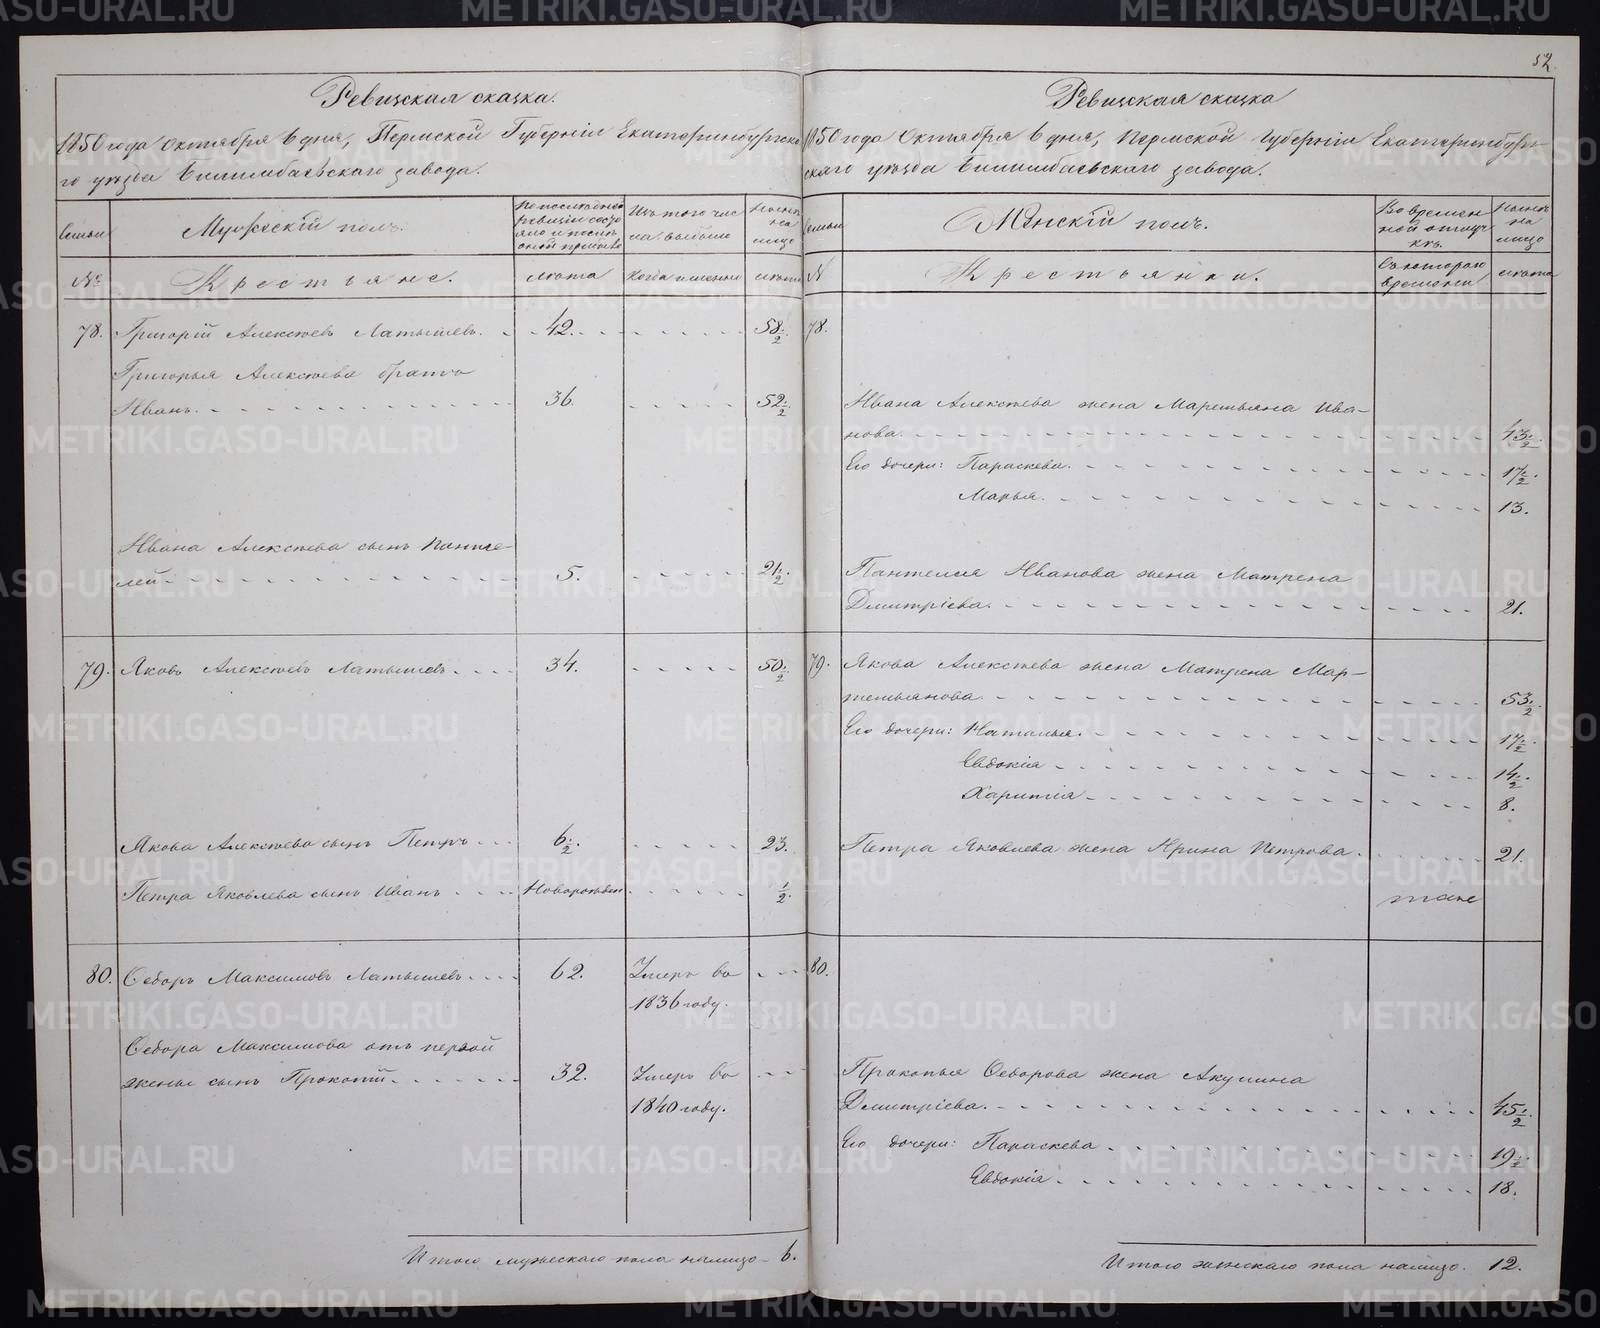 52
Ревизская сказка.
1850 года октября 6 дня, Пермской Губерніи Екатеринбургска-
го уѣзда Билимбаевскаго завода.
Семьи
Мужескій полъ.
По последней
ревизіи состо
яло и после
оной прибыло
Изъ того чис
ла выбыло
Нынѣ
на
лицо
№
Крестьяне.
лѣта
Когда именно
лѣта
78. Григорій Алексѣевъ Латышевъ. 42. 58 1/2
Григорья Алексѣева братъ
Иванъ. 36. 52 1/2.
Ивана Алексѣева сынъ Панте-
лей 5. 21 1/2.
79. Яковъ Алексѣевъ Латышевъ. 34. 50 1/2
Якова Алексѣева сынъ Петръ 6 1/2. 23.
Петра Яковлева сынъ Иванъ Новорожден. 1/2.
80. Ѳедоръ Максимовъ Латышевъ. 62. Умеръ во
1836 году.
Ѳедора Максимова отъ первой
жены сынъ Прокопій. 32. Умеръ во
1840 году.
Итого мужескаго пола налицо 6.
Ревизская сказка
1850 года Октября 6 дня, Пермской Губерніи Екатеринбург-
скаго уѣзда Билимбаевскаго завода.
Семьи
Женскій полъ.
Во времен
ной отлуч
кѣ.
Нынѣ
на
лицо
№
Крестьянки.
Съ котораго
времени
лѣта
78.
Ивана Алексѣева жена Маремьяна Ива-
нова. 43 1/2.
Его дочери: Параскева. 17 1/2.
Марья. 13.
Пантелея Иванова жена Матрена
Дмитріева. 21.
79. Якова Алексѣева жена Матрена Мар-
темьянова. 53 1/2.
Его дочери: Наталья. 17 1/2.
Евдокія 14 1/2.
Харитія 8.
Петра Яковлева жена Ирина Петрова. 21.
тоже
80.
Прокопья Ѳедорова жена Акулина
Дмитріева. 45 1/2.
Его дочери: Параскева 19 1/2.
Евдокія 18.
Итого женскаго пола налицо. 12.
METRIKI.GASO-URAL.RU